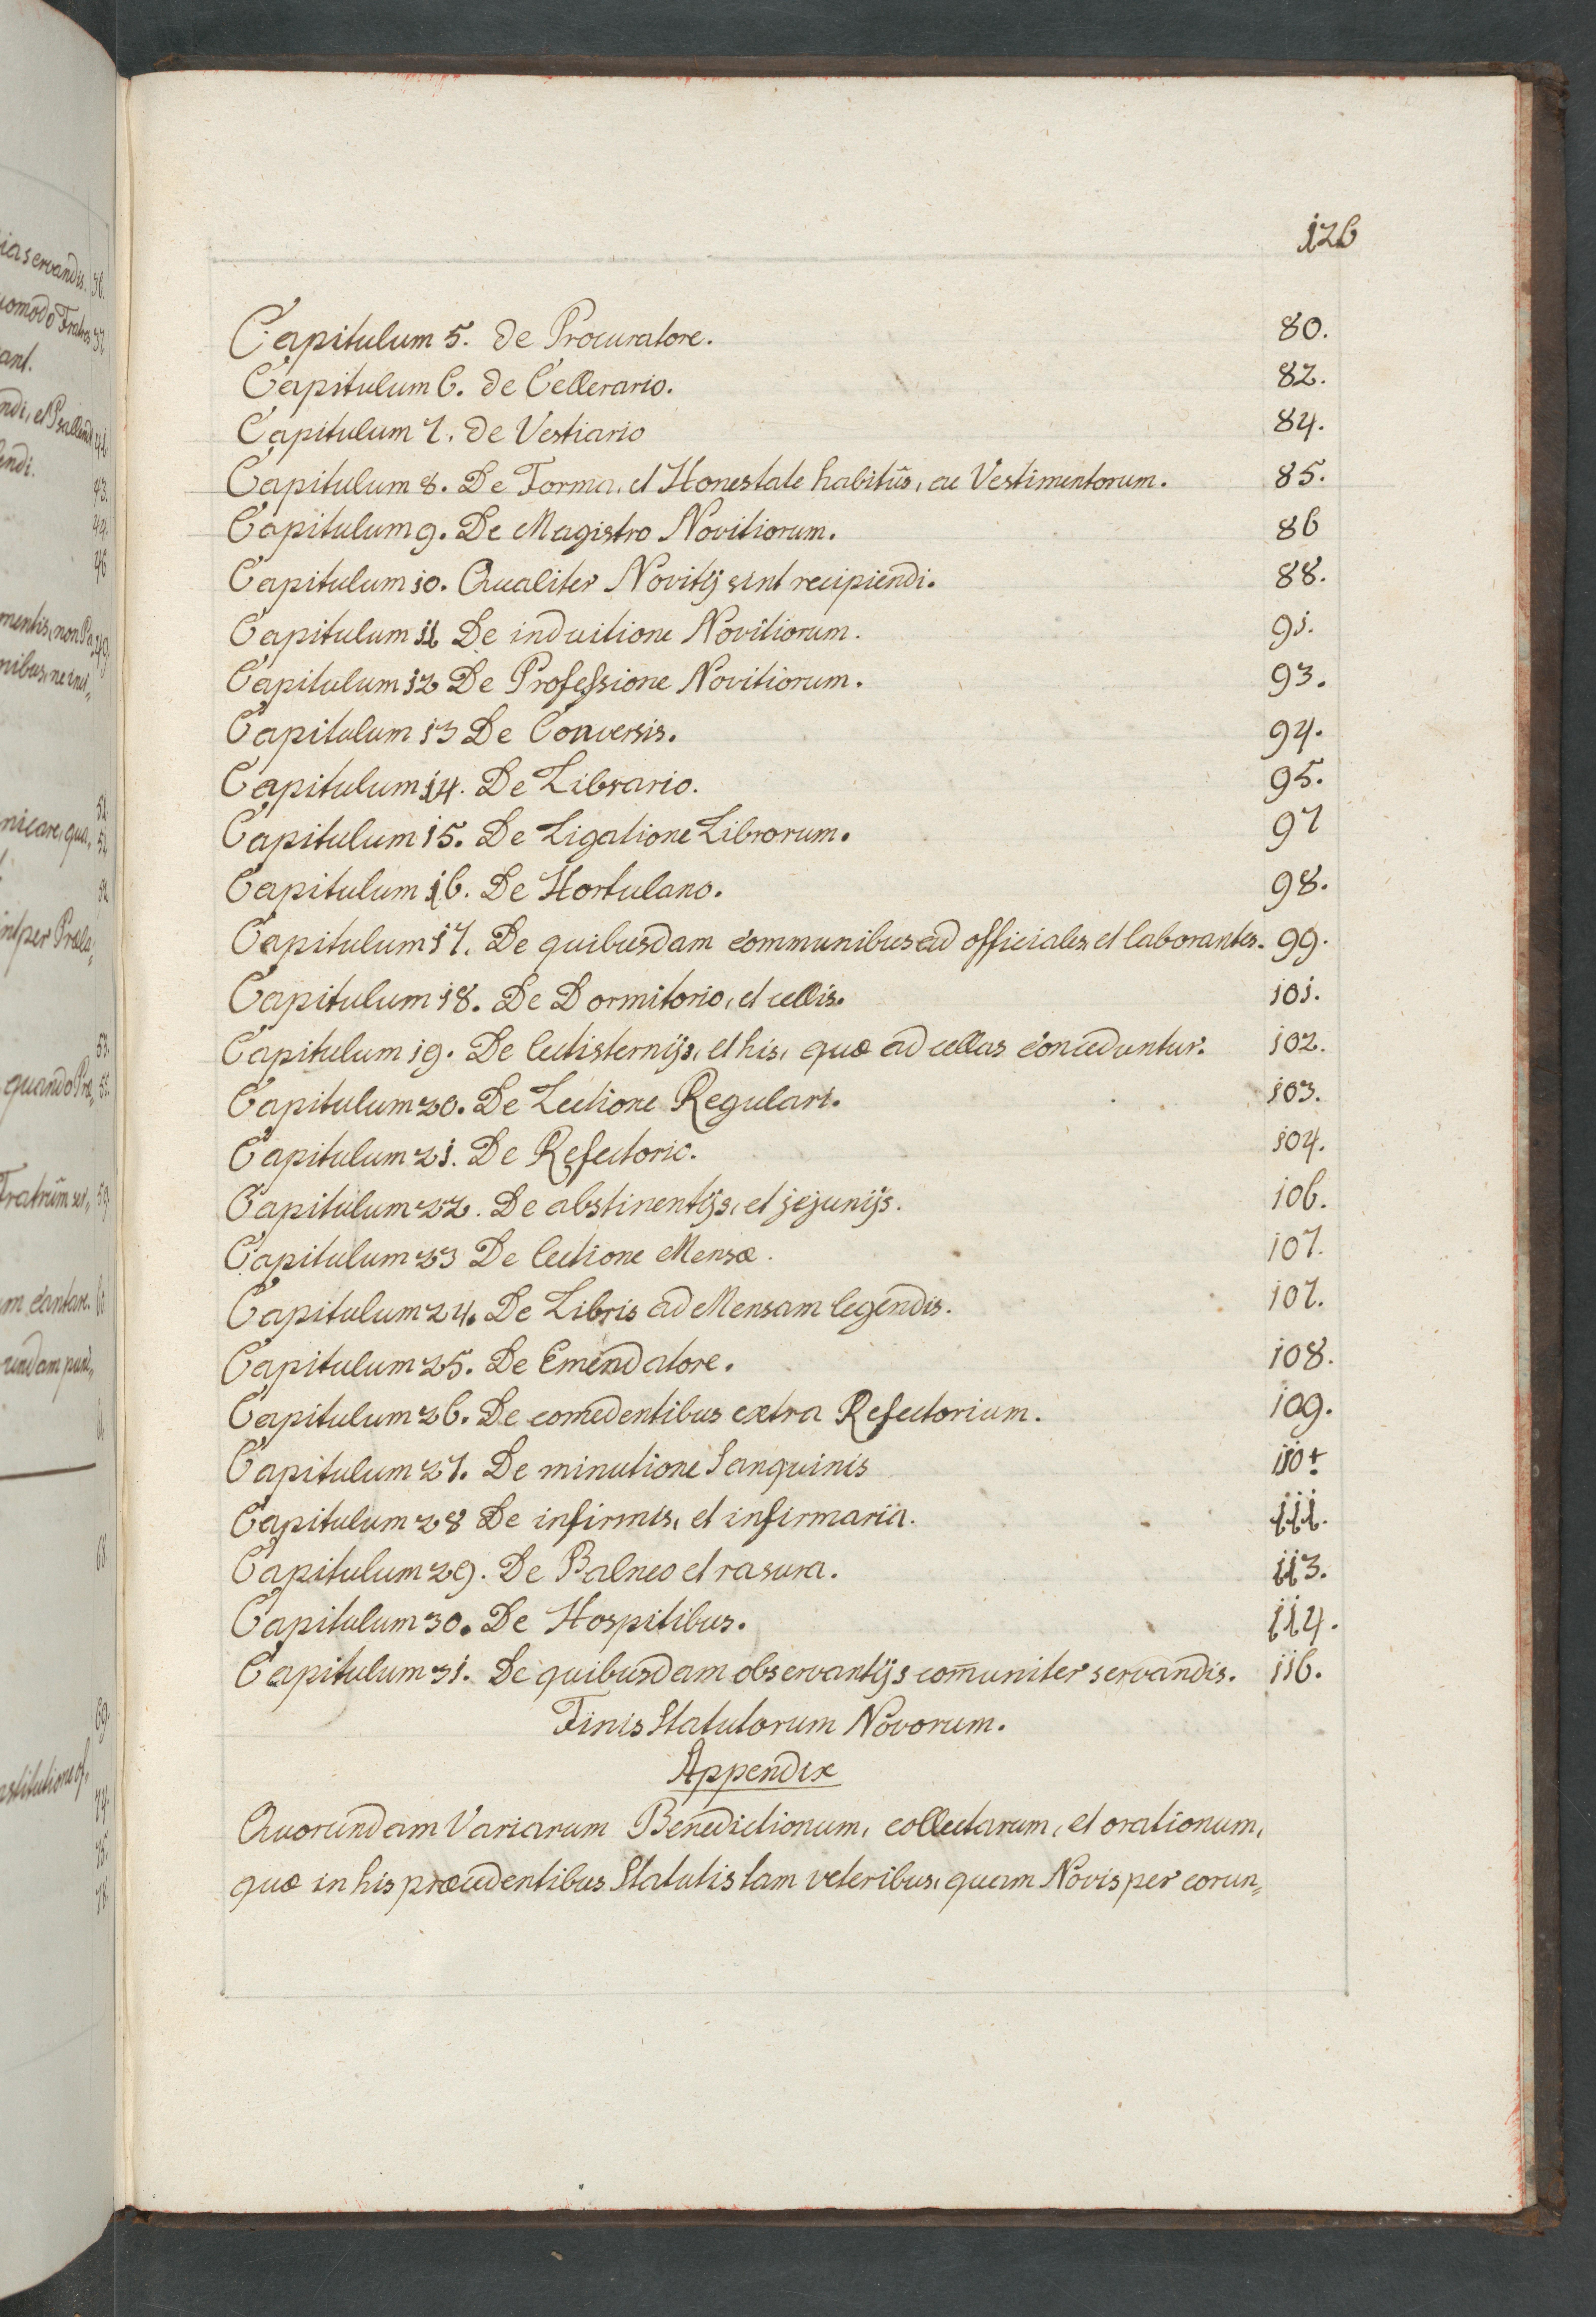 126
Capitulum 5. de Procuratore. 80.
Capitulum 6. de Cellerario. 82.
Capitulum 7. de Vestiario 84.
Capitulum 8. De Forma, et Honestate habitûs, ac Vestimentorum. 85.
Capitulum 9. De Magistro Novitiorum. 86
Capitulum 10. Qualiter Novitij sint recipiendi. 88.
Capitulum 11 De induitione Novitiorum. 91.
Capitulum 12 De Professione Novitiorum. 93.
Capitulum 13 De Conversis. 94.
Capitulum 14. De Librario. 95.
Capitulum 15. De Ligatione Librorum. 97
Capitulum 16. De Hortulano. 98.
Capitulum 17. De quibusdam communibus ad officiales et laborantes. 99.
Capitulum 18. De Dormitorio, et cellis. 101.
Capitulum 19. De lectisternijs, et his, quæ ad cellas conceduntur. 102.
Capitulum 20. De Lectione Regulari. 103.
Capitulum 21. De Refectorio. 104.
Capitulum 22. De abstinentijs, et jejunijs. 106.
Capitulum 23 De lectione Mensæ. 107.
Capitulum 24. De Libris ad Mensam legendis. 107.
Capitulum 25. De Emendatore. 108.
Capitulum 26. De comedentibus extra Refectorium. 109.
Capitulum 27. De minutione Sanguinis 110.
Capitulum 28 De infirmis, et infirmaria. 111.
Capitulum 29. De Balneo et rasura. 113.
Capitulum 30. De Hospitibus. 114.
Capitulum 31. De quibusdam observantijs com̄uniter servandis. 116.
Finis Statutorum Novorum.
Appendix
Quorundam Variarum Benedictionum, collectarum, et orationum,
quæ in his præcedentibus Statutis tam veteribus, quam Novis per eorun„